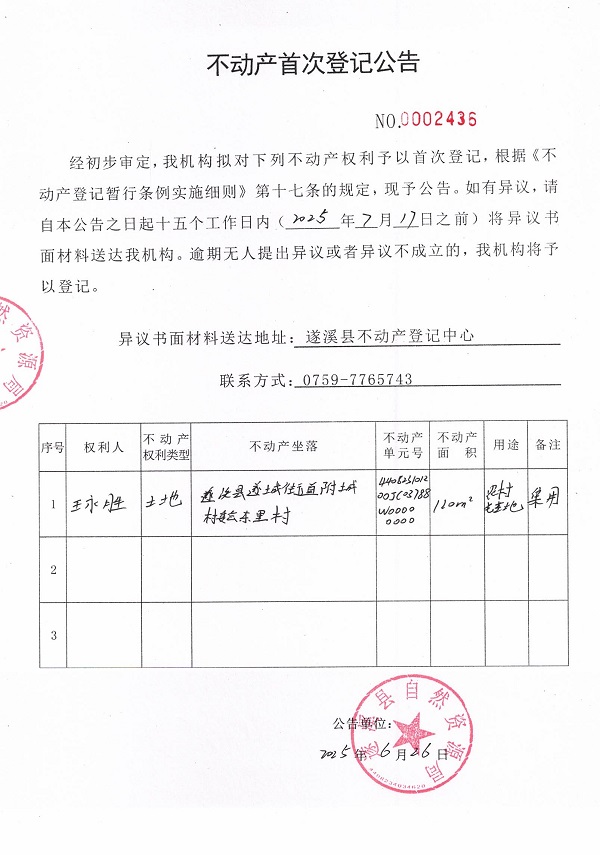 不动产首次登记公告
NO.0002436
经初步审定，我机构拟对下列不动产权利予以首次登记，根据《不
动产登记暂行条例实施细则》第十七条的规定，现予公告。如有异议，请
自本公告之日起十五个工作日内（2025 年 7 月 17 日之前）将异议书
面材料送达我机构。逾期无人提出异议或者异议不成立的，我机构将予
以登记。
异议书面材料送达地址：遂溪县不动产登记中心
联系方式：0759-7765743
序号 权利人 不动产权利类型 不动产坐落 不动产单元号 不动产面积 用途 备注
1 王永胜 土地 遂溪县遂城街道附城 120m² 农村 集用
东里村 宅基地
W0000
0000
2
3
公告单位：
2025 年 6 月 26 日
遂溪县自然资源局
然资源局